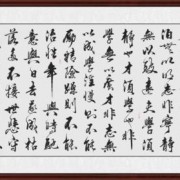 泊無以明志非寧靜
無以致遠夫學須
靜也才須學也非
學無以廣才非志無
以成學淫慢則不能
勵精險躁則不能
治性年與時馳
意與日去遂成枯
落多不接世悲守